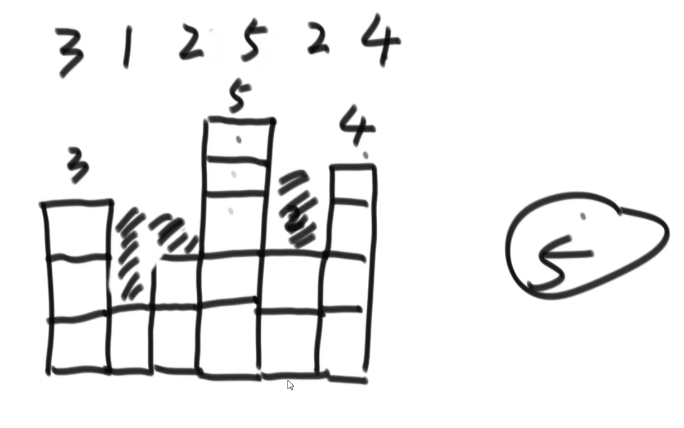 3 1 2 5 2 4
5
4
3
2
5